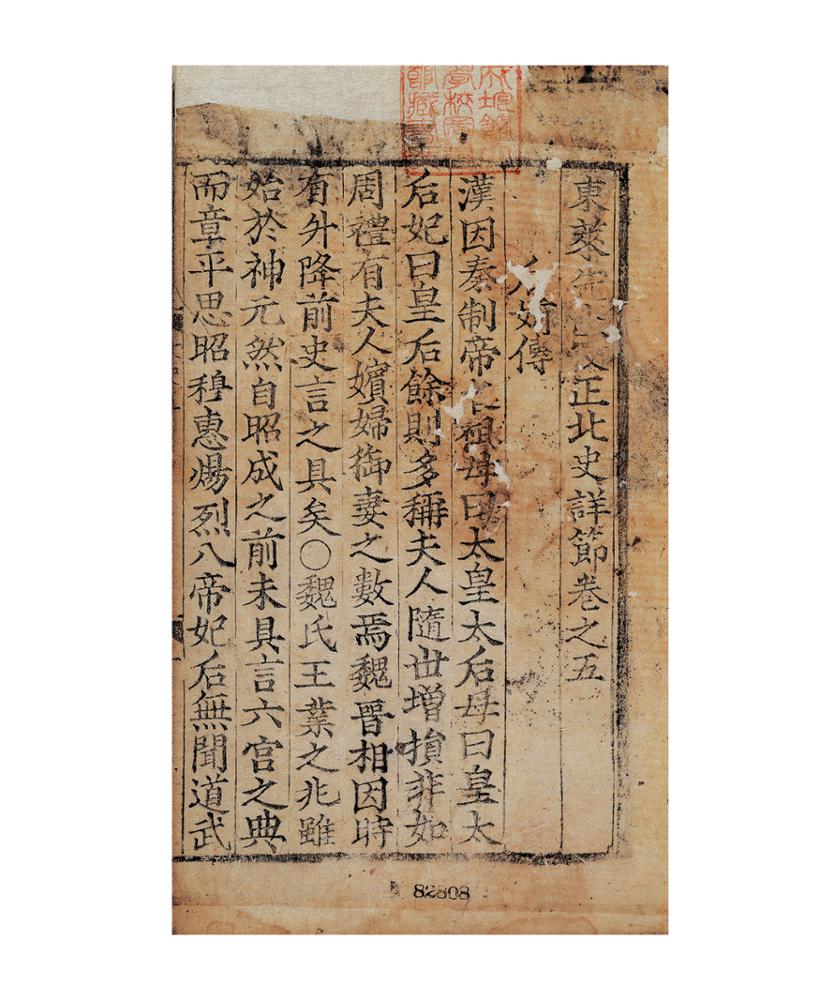 東萊先正北史詳節卷之五
后妃傳
漢因秦制帝之祖母曰太皇太后母曰皇太
后妃曰皇后餘則多稱夫人隨世增損非如
周禮有夫人嬪婦御妻之數焉魏晉相因時
有升降前史言之具矣○魏氏王業之兆雖
始於神元然自昭成之前未具言六宮之典
而章平思昭穆惠煬烈八帝妃后無聞道武
82808